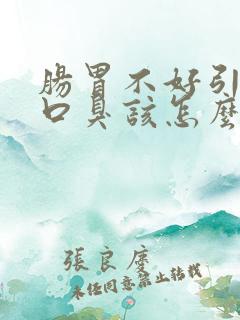 腸胃不好引
口臭該怎麼
張良慶
未经同意禁止转载